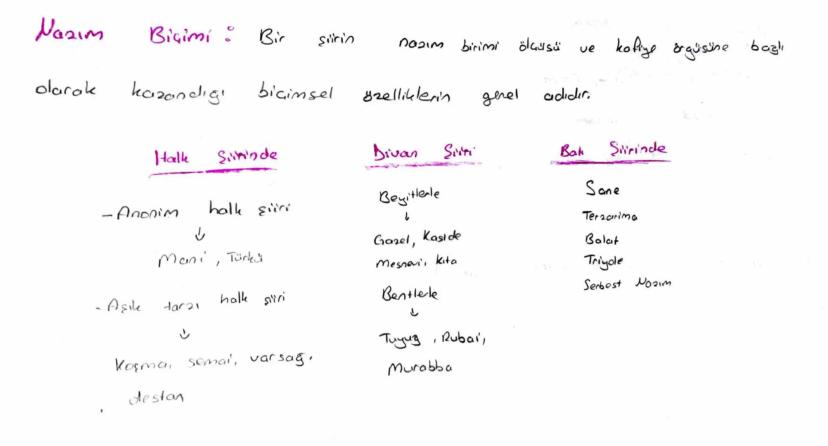 Nazım Biçimi : Bir şiirin nazım birimi ölçüsü ve kafiye örgüsüne bağlı
olarak kazandığı biçimsel özelliklerin genel adıdır.
Halk Şiirinde
- Anonim halk şiiri
↓
Mani, Türkü
- Aşık tarzı halk şiiri
↓
Koşma, semai, varsağı,
destan
Divan Şiiri
Beyitlerle
↓
Gazel, Kaside
Mesnevi, Kıta
Bentlerle
↓
Tuyuğ, Rubai,
Murabba
Batı Şiirinde
Sone
Terzarima
Balat
Triyole
Serbest Nazım